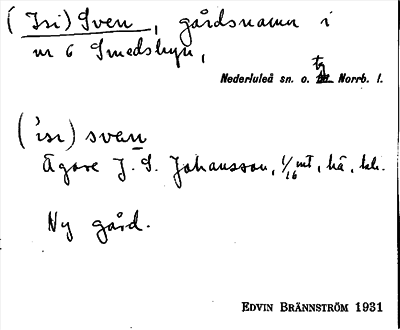 (Isi) Sven, gårdsnamn i
nr 6 Smedsbyn,
Nederluleå sn. o. tg Norrb. l.
(ˈisi) sven
Ägare J. S. Johansson, 1/16 mt, hä, kl.
Ny gård.
EDVIN BRÄNNSTRÖM 1931